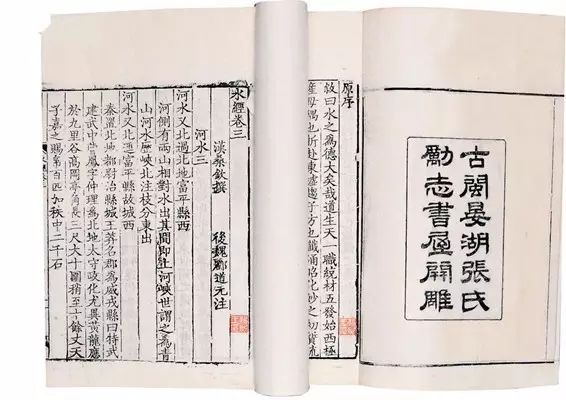 古閩晏湖張氏
勵志書屋開雕
原序
敘曰水之為德大矣哉道生天一職統材五發始西極
產毋偶也折赴東墟趨子方也
水經卷三
漢桑欽撰 後魏酈道元注
河水三
河水又北過北地富平縣西
河側有兩山相對水出其間即上河峽世謂之為青
山河水歷峽北注枝分東出
河水又北逕富平縣故城西
秦置北地都尉治縣城王莽名郡為威戎縣曰特武
建武中曹鳳字仲理為北地太守政化尤異黃龍應
於九里谷高岡亭角長三丈大十圍梢至十餘丈天
子嘉之賜帛百匹加秩中二千石